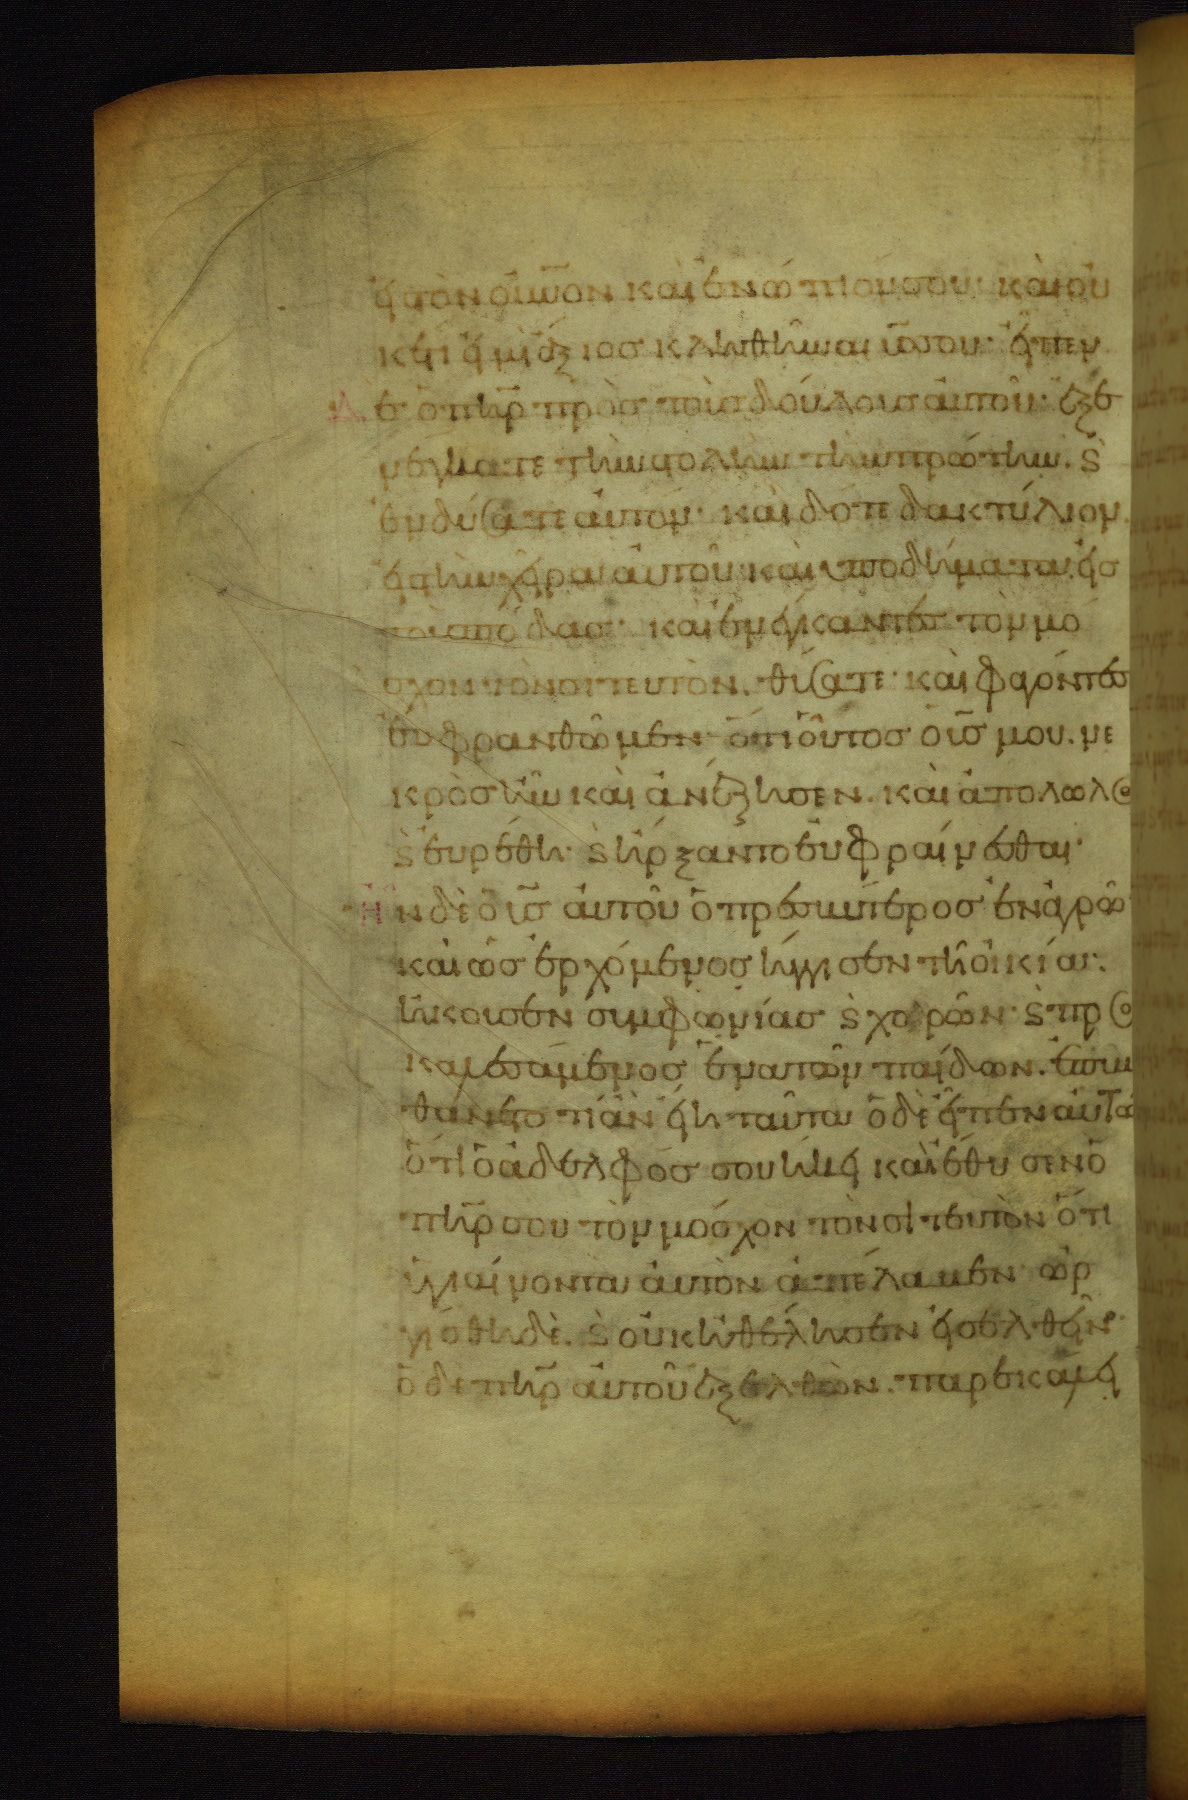 εἰς τὸν οὐνὸν καὶ ἐνώπιόν σου· καὶ οὐ
κέτι εἰμὶ ἄξιος κληθῆναι υἱός σου· εἶπεν
δὲ ὁ πηρ πρὸς τοὺς δούλους αὐτοῦ· ἐξε
νέγκατε τὴν στολὴν τὴν πρώτην. ϗ
ἐνδύσατε αὐτόν· καὶ δότε δακτύλιον
εἰς τὴν χεῖρα αὐτοῦ καὶ ὑποδήματα εἰς
τοὺς πόδας· καὶ ἐνέγκαντες τὸν μό
σχον τὸν σιτευτὸν. θύσατε· καὶ φαγόντες
εὐφρανθῶμεν· ὅτι οὗτος ὁ υἱς μου. νε
κρὸς ἦν καὶ ἀνέζησεν. καὶ ἀπολωλὸς
ϗ εὑρέθη· ϗ ἤρξαντο εὐφραίνεσθαι·
Ἦν δὲ ὁ υἱς αὐτοῦ ὁ πρεσβύτερος ἐν ἀγρῶ
καὶ ὡς ἐρχόμενος ἤγγισεν τῆ οἰκία·
ἤκουσεν συμφωνίας ϗ χορῶν· ϗ προσ
καλεσάμενος ἕνα τῶν παίδων. ἐπυν
θάνετο τί ἂν εἴη ταῦτα ὁ δὲ εἶπεν αὐτῶ
ὅτι ὁ ἀδελφός σου ἥκει καὶ ἔθυσεν ὁ
πηρ σου τὸν μόσχον τὸν σιτευτὸν ὅτι
ὑγιαίνοντα αὐτὸν ἀπέλαβεν· ὠρ
γίσθη δὲ. ϗ οὐκ ἤθέλησεν εἰσελθεῖν·
ὁ δὲ πηρ αὐτοῦ ἐξελθὼν. παρεκάλει